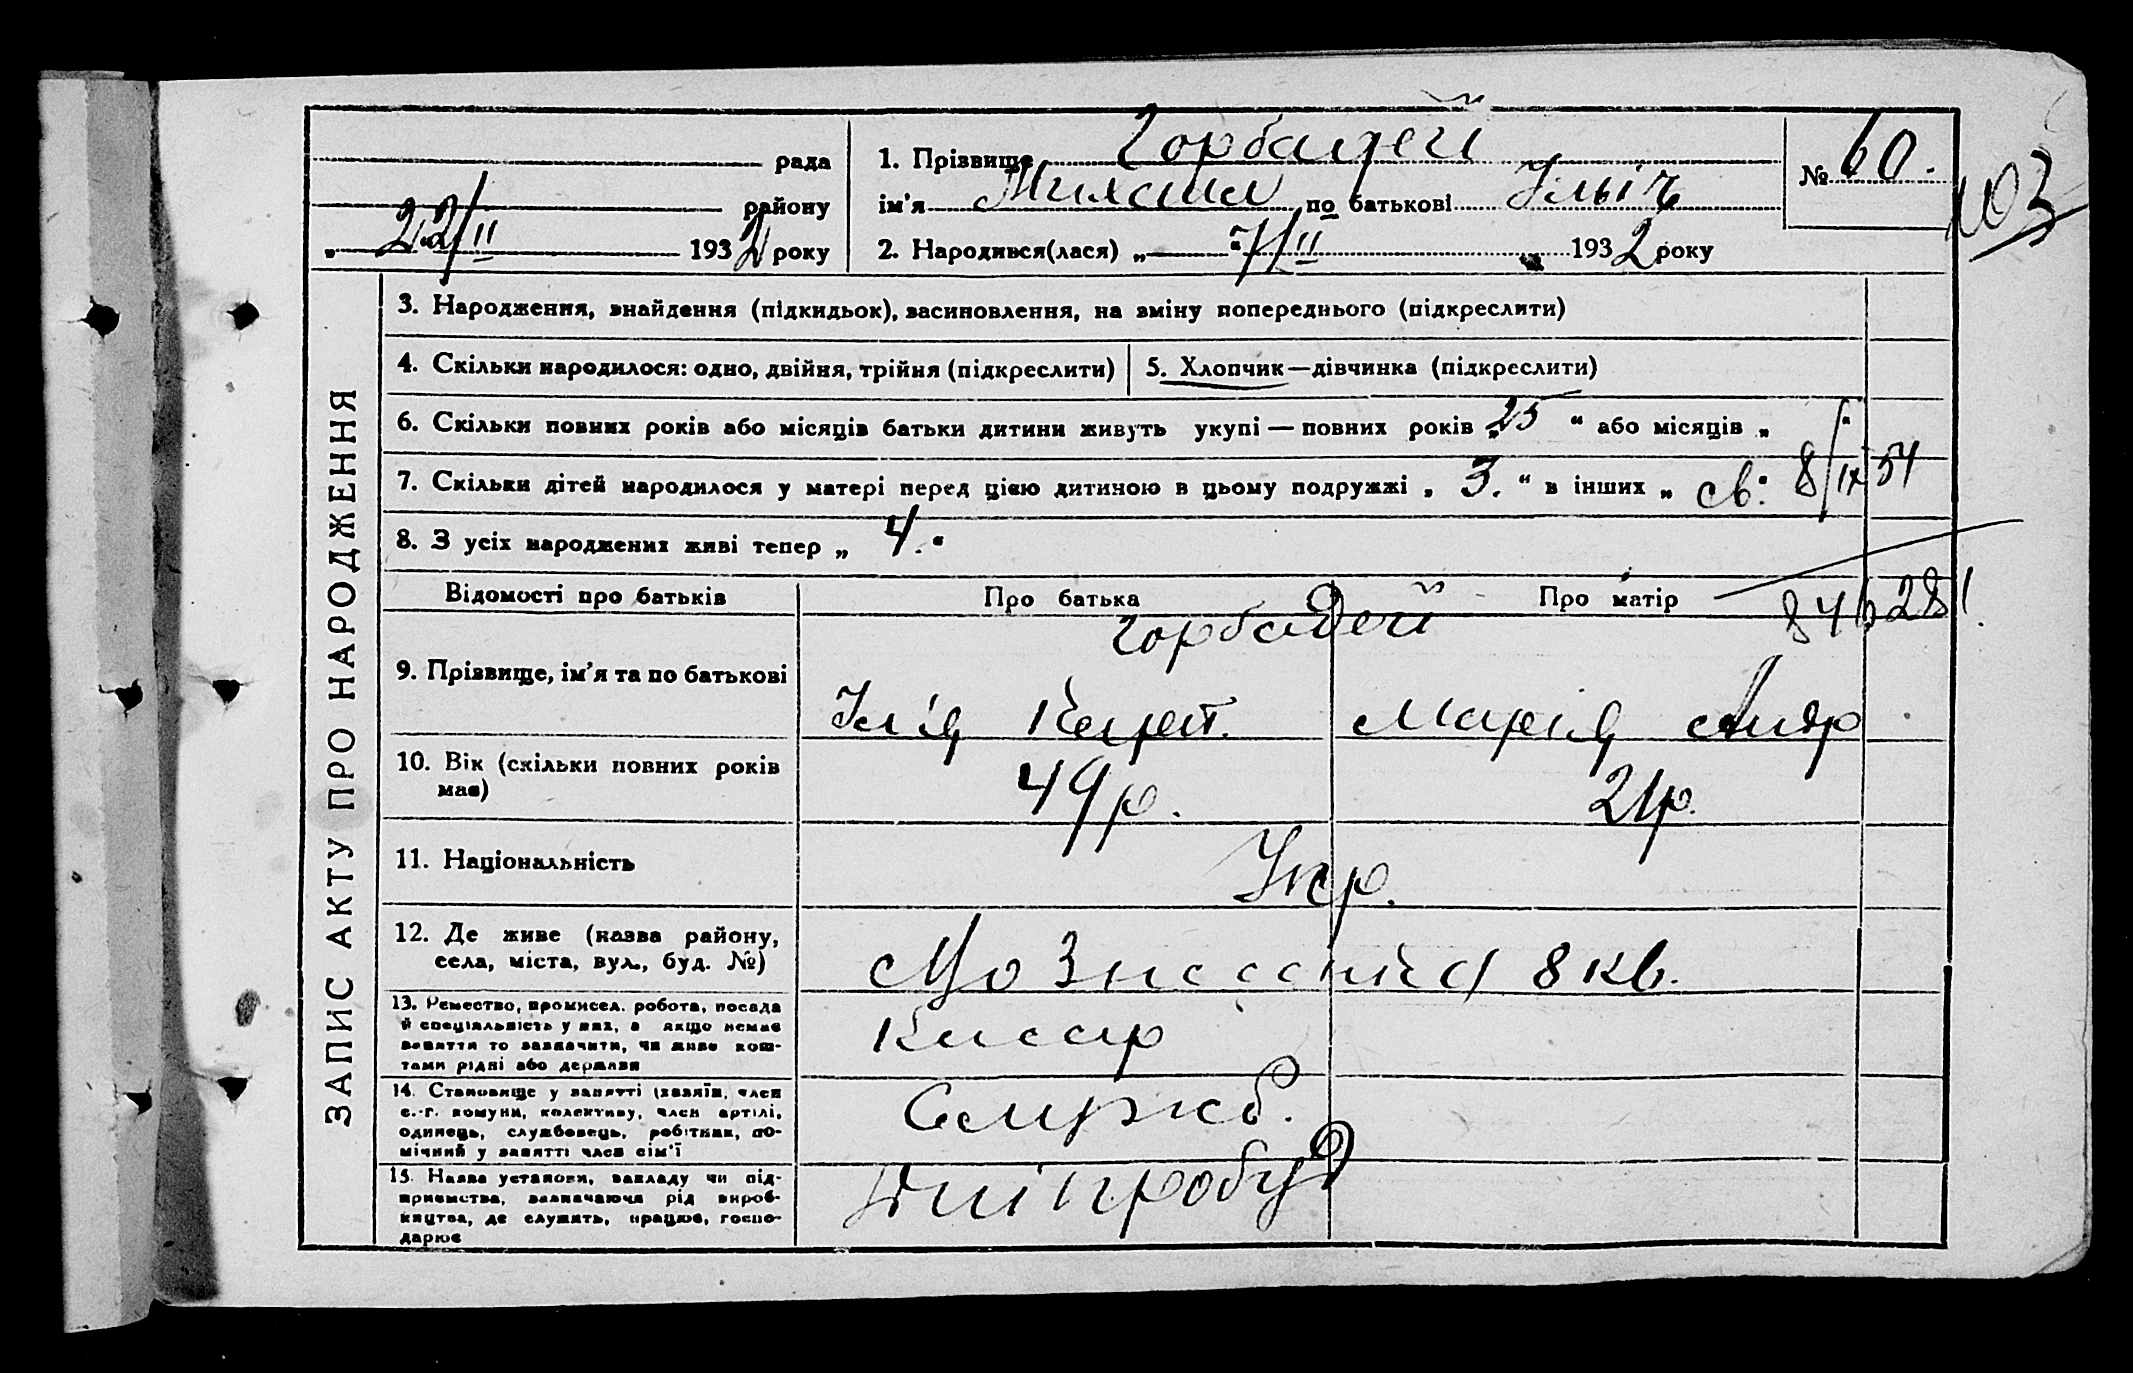 рада
району
„ 22/II 1932 року
1. Прізвище Горбадей
ім'я Михайло по батькові Ільіч
2. Народився(лася) „ 7/II 1932 року
№ 60.
103
ЗАПИС АКТУ ПРО НАРОДЖЕННЯ
3. Народження, знайдення (підкидьок), засиновлення, на зміну попереднього (підкреслити)
4. Скільки народилося: одно, двійня, трійня (підкреслити)
5. Хлопчик—дівчинка (підкреслити)
6. Скільки повних років або місяців батьки дитини живуть укупі — повних років „ 25 “ або місяців „ “
7. Скільки дітей народилося у матері перед цією дитиною в цьому подружжі „ 3. “ в інших „ св: 8/IX 54
8. З усіх народжених живі тепер „ 4. “
Відомості про батьків
Про батька
Про матір
846281
Горбадей
9. Прізвище, ім'я та по батькові
Ілія
Марія Андр
10. Вік (скільки повних років має)
49 р.
21 р.
11. Національність
Укр.
12. Де живе (назва району,
села, міста, вул., буд. №)
8 кв.
13. Ремество, промисел, робота, посада
й спеціяльність у них, а якщо немає
заняття то зазначити, чи живе кош-
тами рідні або держави
Касир
14. Становище у занятті (хазяїн, член
с.-г. комуни, колективу, член артілі,
одинець, службовець, робітник, по-
мічний у занятті член сім'ї
Служб.
15. Назва установи, закладу чи під-
приємства, зазначаючи рід вироб-
ництва, де служить, працює, госпо-
дарює
Дніпробуд